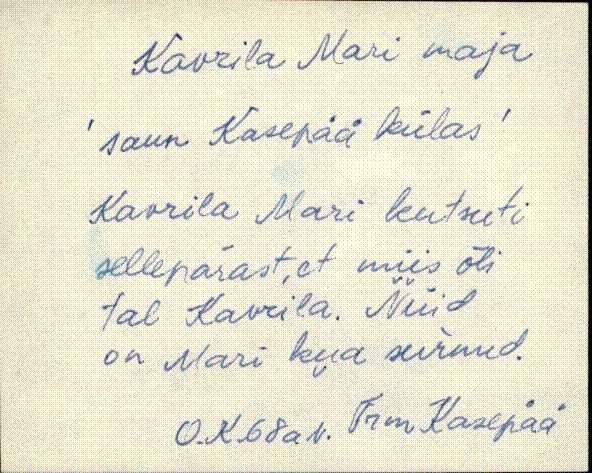 Kavrila Mari maja
'saun Kasepää külas'
Kavrila Mari kutsuti
sellepärast, et miis õli
tal Kavrila. Nüid
on Mari kua suirnud.
O.K. 68 a v. Trm Kasepää